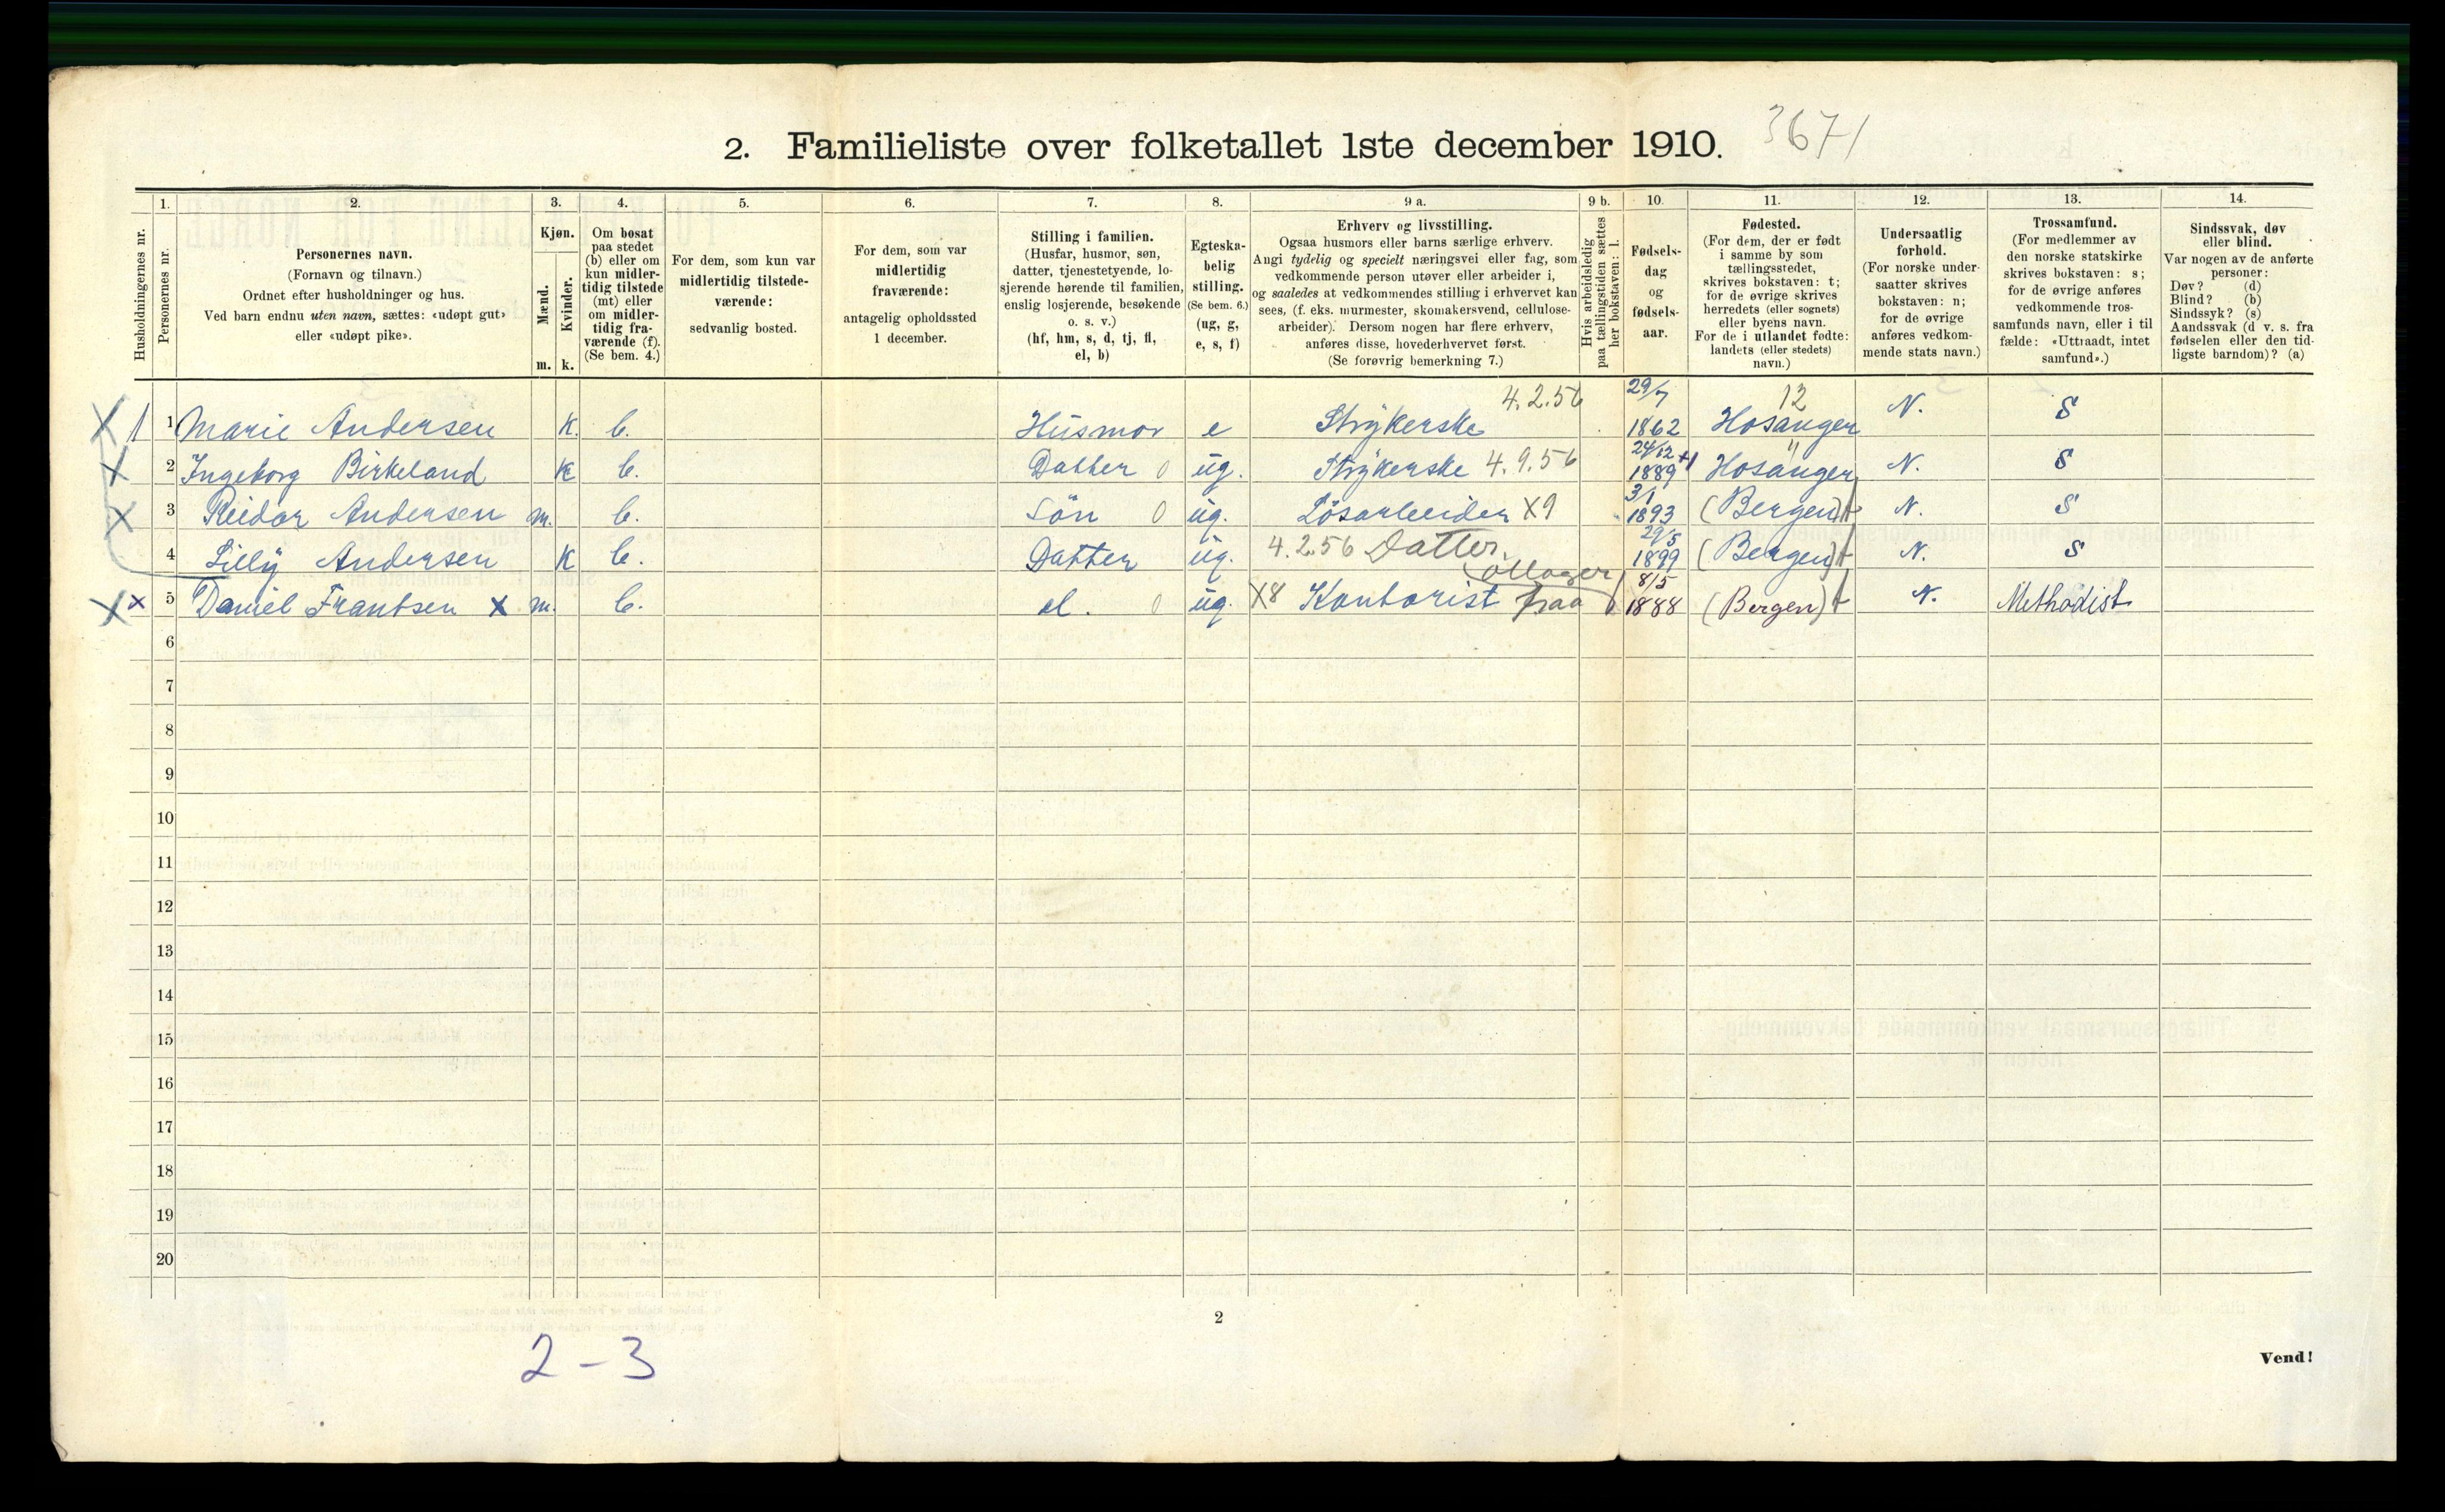 2. Familieliste over folketallet 1ste december 1910. 3671
Husholdningernes nr.
1. Personernes nr.
2. Personernes navn.
(Fornavn og tilnavn.)
Ordnet efter husholdninger og hus.
Ved barn endnu uten navn, sættes: «udøpt gut»
eller «udøpt pike».
3. Kjøn.
Mænd. m.
Kvinder. k.
4. Om bosat
paa stedet
(b) eller om
kun midler-
tidig tilstede
(mt) eller
om midler-
tidig fra-
værende (f).
(Se bem. 4.)
5. For dem, som kun var
midlertidig tilstede-
værende:
sedvanlig bosted.
6. For dem, som var
midlertidig
fraværende:
antagelig opholdssted
1 december.
7. Stilling i familien.
(Husfar, husmor, søn,
datter, tjenestetyende, lo-
sjerende hørende til familien,
enslig losjerende, besøkende
o. s. v.)
(hf, hm, s, d, tj, fl,
el, b)
8. Egteska-
belig
stilling.
(Se bem. 6.)
(ug, g,
e, s, f)
9 a. Erhverv og livsstilling.
Ogsaa husmors eller barns særlige erhverv.
Angi tydelig og specielt næringsvei eller fag, som
vedkommende person utøver eller arbeider i,
og saaledes at vedkommendes stilling i erhvervet kan
sees, (f. eks. murmester, skomakersvend, cellulose-
arbeider). Dersom nogen har flere erhverv,
anføres disse, hovederhvervet først.
(Se forøvrig bemerkning 7.)
9 b. Hvis arbeidsledig
paa tællingstiden sættes
her bokstaven: l.
10. Fødsels-
dag
og
fødsels-
aar.
11. Fødested.
(For dem, der er født
i samme by som
tællingsstedet,
skrives bokstaven: t;
for de øvrige skrives
herredets (eller sognets)
eller byens navn.
For de i utlandet fødte:
landets (eller stedets)
navn.)
12. Undersaatlig
forhold.
(For norske under-
saatter skrives
bokstaven: n;
for de øvrige
anføres vedkom-
mende stats navn.)
13. Trossamfund.
(For medlemmer av
den norske statskirke
skrives bokstaven: s;
for de øvrige anføres
vedkommende tros-
samfunds navn, eller i til
fælde: «Uttraadt, intet
samfund».)
14. Sindssvak, døv
eller blind.
Var nogen av de anførte
personer:
Døv? (d)
Blind? (b)
Sindssyk? (s)
Aandssvak (d v. s. fra
fødselen eller den tid-
ligste barndom)? (a)
X 1 1 Marie Andersen k. b. Husmor e Strykerske 4.2.56 29/7 1862 12 Hosanger N. S
X 2 Ingeborg Birkeland k b. Datter 0 ug. Strykerske 4.9.56 24/12 1889 +1 " Hosanger N. S
X 3 Reidar Andersen m. b. Sön 0 ug. Lösarbeider X9 3/1 1893 (Bergen) t N. S
4 Lilly Andersen k b. Datter ug. 4.2.56 Datter. 29/5 1899 (Bergen) t N. S
X x 5 Daniel Frantsen x m. b. el. 0 ug. X8 Kontorist paa 8/5 1888 (Bergen) t N. Methodist
6
7
8
9
10
11
12
13
14
15
16
17
18
19
20
2
2-3
Vend!